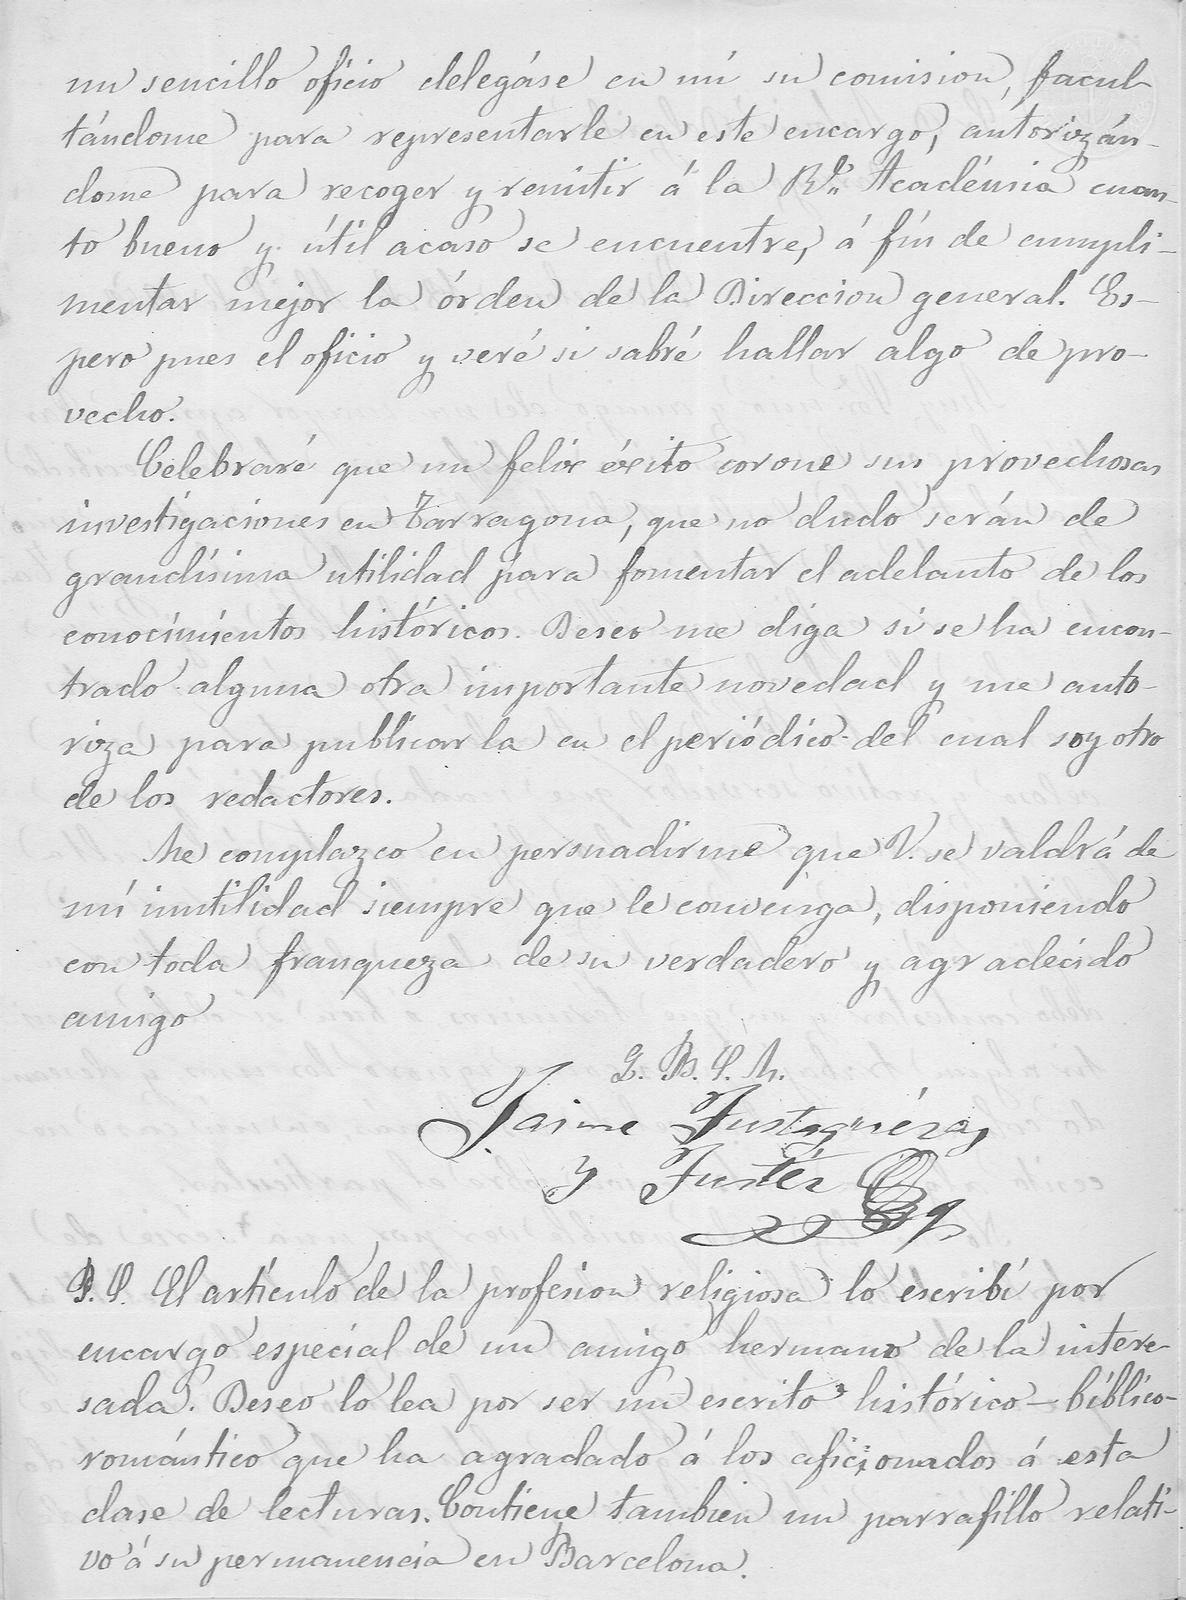 un sencillo oficio delegáse en mi su comision, facul-
tándome para representarle en este encargo, autorizán-
dome para recoger y remitir á la Rl. Académia cuan-
to bueno y útil acaso se encuentre, á fin de cumpli-
mentar mejor la órden de la Direccion general. Es-
pero pues el oficio y veré si sabré hallar algo de pro-
vecho.
Celebraré que un felix éxito corone sus provechosas
investigaciones en Tarragona, que no dudo serán de
grandísima utilidad para fomentar el adelanto de los
conocimientos históricos. Deseo me diga si se ha encon-
trado alguna otra importante novedad y me auto-
riza para publicarla en el periódico del cual soy otro
de los redactores.
Me complazco en persuadirme que V. se valdrá de
mi inutilidad siempre que le convenga, disponiendo
con toda franqueza de su verdadero y agradecido
amigo
Q. B. S. M.
Jaime
y Fustér
P. S. El artículo de la profesion religiosa lo escribí por
encargo especial de un amigo hermano de la intere-
sada. Deseo lo lea por ser un escrito histórico-bíblico-
romántico que ha agradado á los aficionados á esta
clase de lecturas. Contiene tambien un parrafillo relati-
vo á su permanencia en Barcelona.